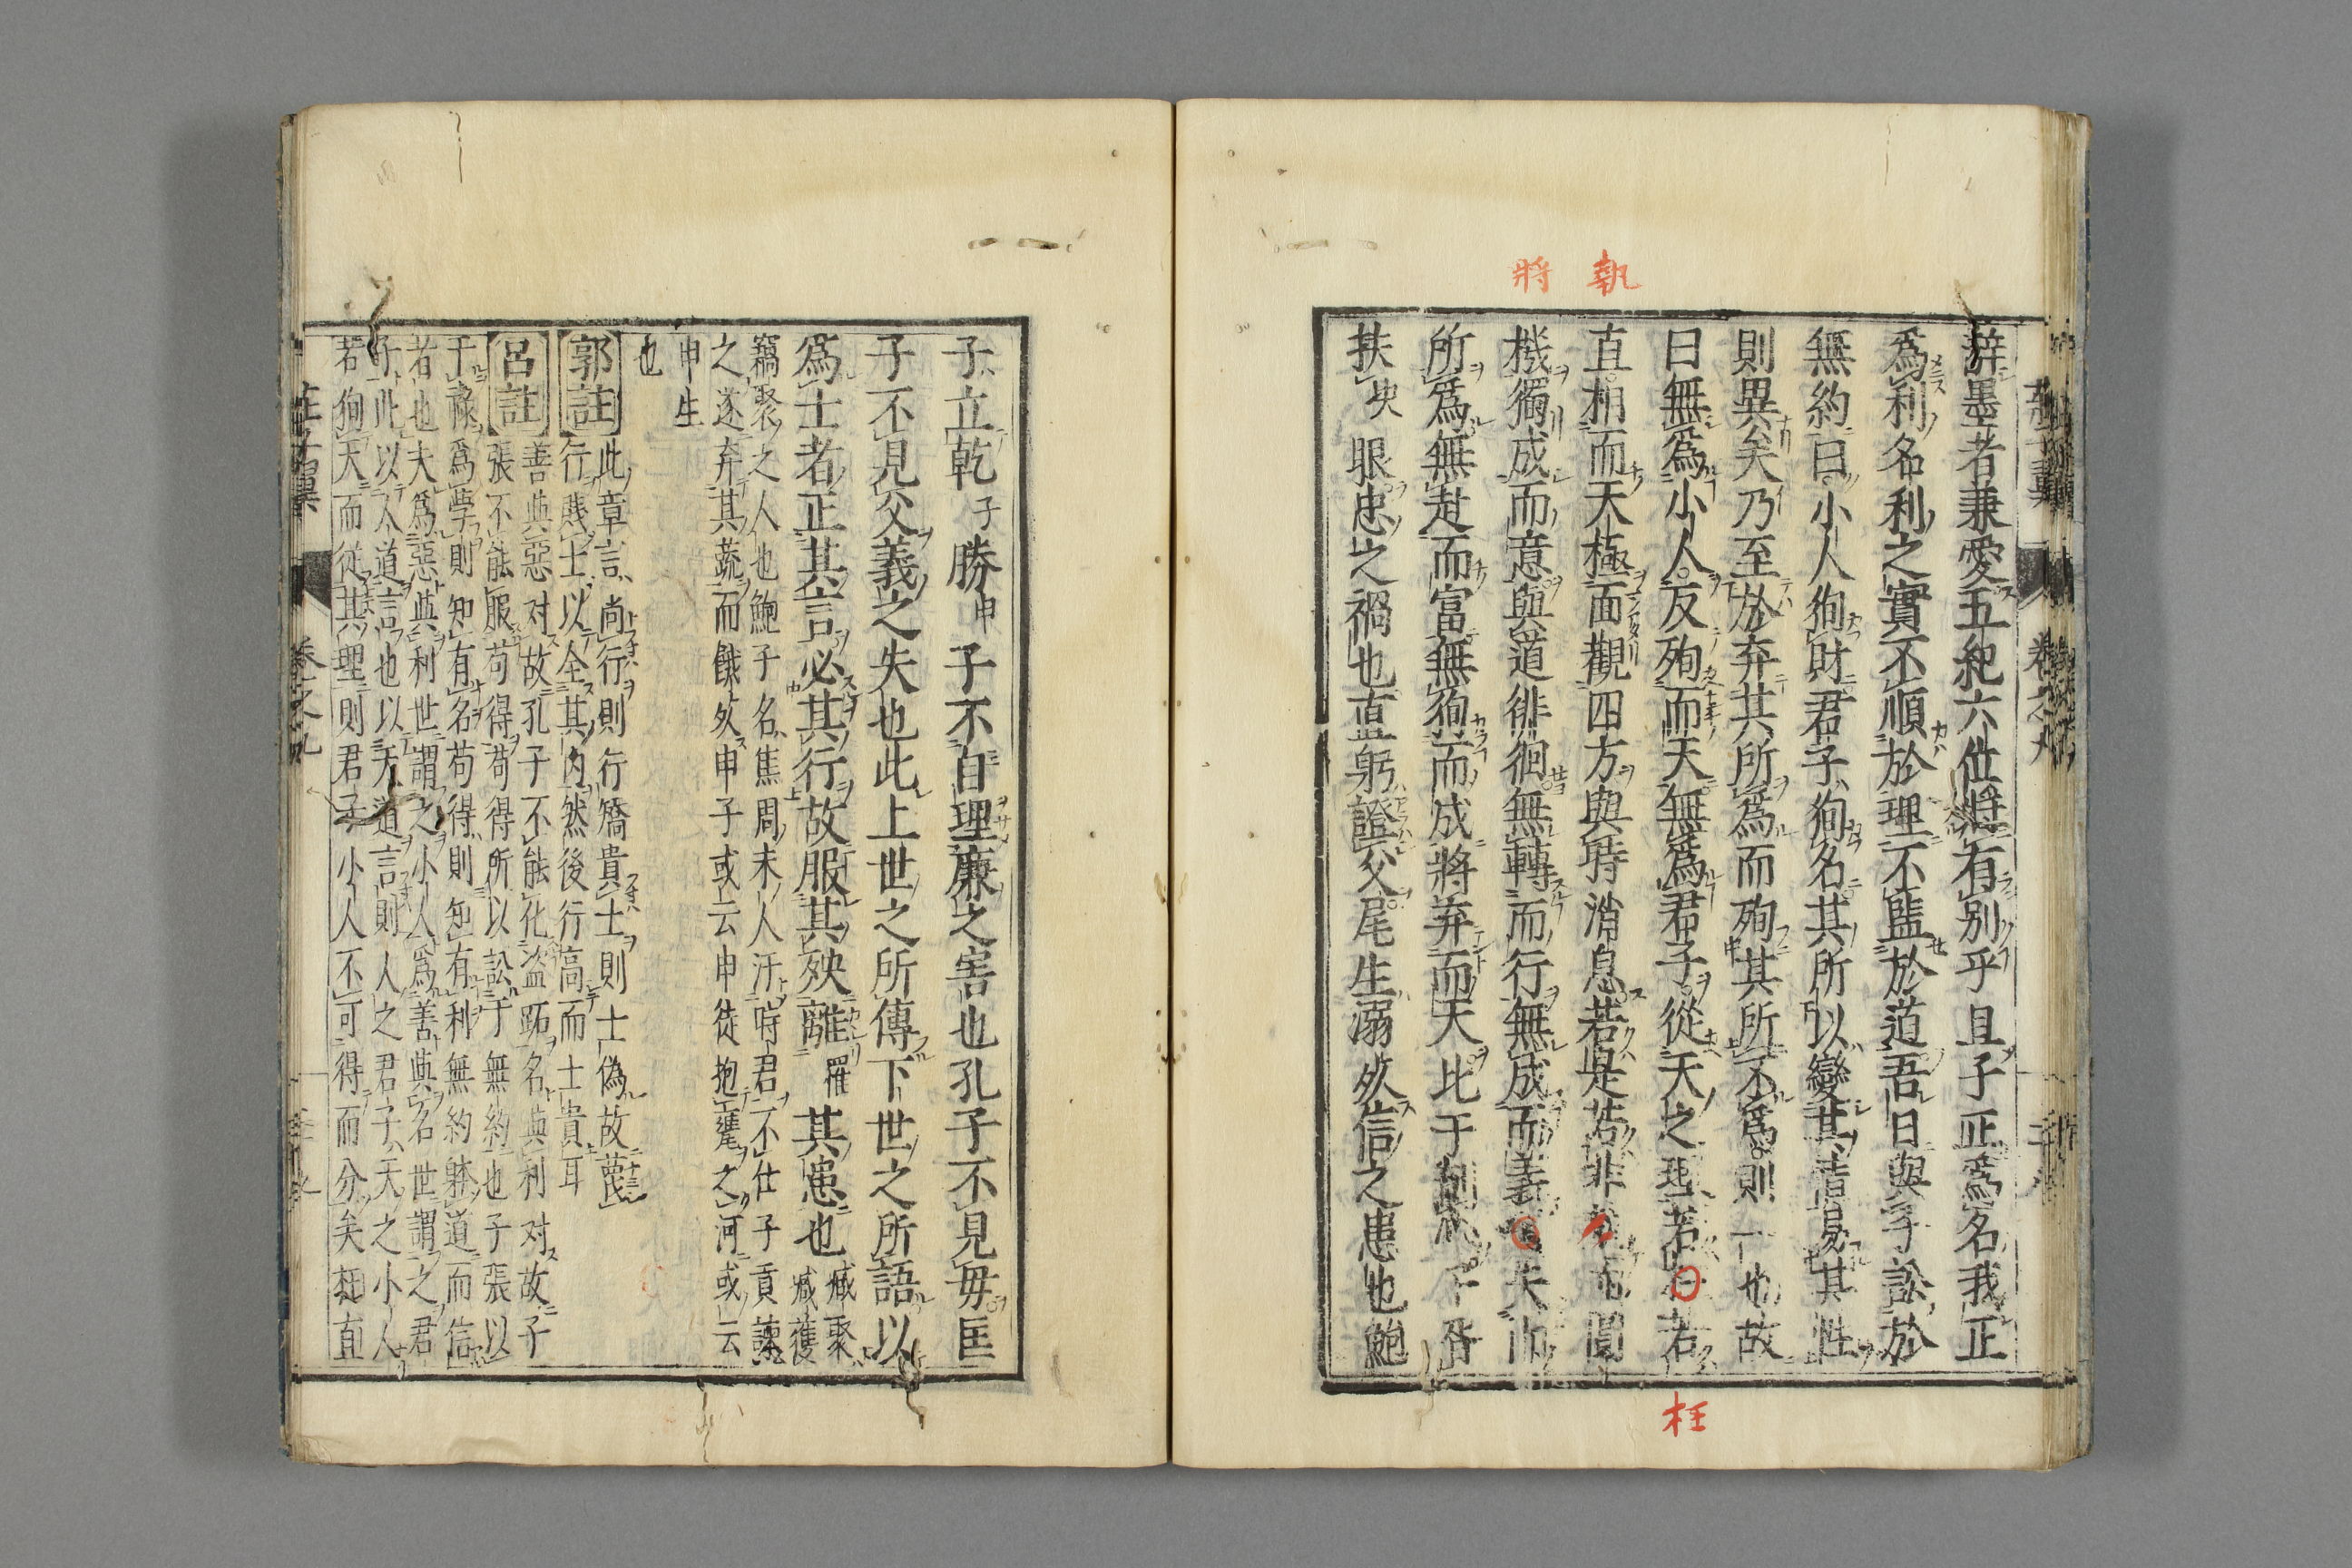 執
將
辞墨者兼愛五紀六位將有別乎且子正爲名我正
爲利名利之實不順於理不監於道吾日與子訟於
無約曰小人狥財君子狥名其所以變其情易其性
則異矣乃至於弃其所爲而殉其所不爲則一也故
曰無爲小人反殉而天無爲君子從天之理若枉若
直相而天極面觀四方與時消息若是若非執而圓
機獨成而意與道徘徊無轉而行無成而義將失而
所爲無赴而富無狥而成將弃而天比干剖心子胥
扶 抉 眼忠之禍也直躬證父尾生溺死信之患也鮑
枉
莊子翼 卷之九
子立乾 子 勝 申 子不自理廉之害也孔子不見毋匡
子不見父義之失也此上世之所傳下世之所語以
爲士者正其言必其行故服其殃離 罹 其患也 臧聚臧獲
竊聚之人也鮑子名焦周末人汙時君不仕子貢諫
之遂弃其蔬而餓死申子或云申徒抱甕之河或云
申生
也
郭註 此章言尚行則行矯貴士則士僞故蔑
行賤士以全其内然後行高而士貴耳
呂註 善與惡対故孔子不能化盜跖名與利対故子
張不能服苟得苟得所以訟于無約也子張以
于祿爲學則知有名苟得則知有利無約躰道而信
者也夫爲惡與利世謂之小人爲善與名世謂之君
子此以人道言也以天道言則人之君子天之小人
若狥天而從其理則君子小人不可得而分矣枉直
莊子翼 卷之九